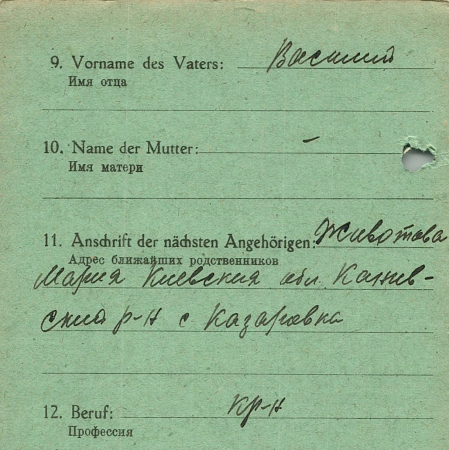 9. Vorname des Vaters: Василий
Имя отца
10. Name der Mutter: –
Имя матери
11. Anschrift der nächsten Angehörigen: Животова
Адрес ближайших родственников
Мария Киевская обл. Канев-
ский р-н с Казаровка
12. Beruf: кр-н
Профессия